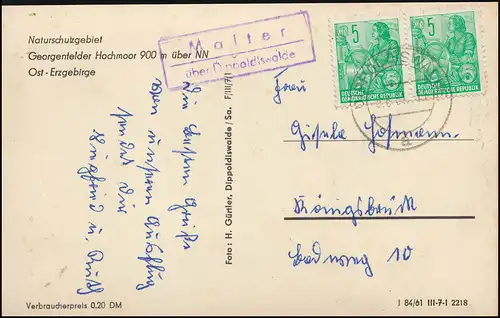 Naturschutzgebiet
Georgenfelder Hochmoor 900 m über NN
Ost-Erzgebirge
Malter
über Dippoldiswalde
5
DEUTSCHE
DEMOKRATISCHE REPUBLIK
5
DEUTSCHE
DEMOKRATISCHE REPUBLIK
a
Frau
Gisela Hofmann
Königsbrück
Badweg 10
Grüße
von unserem Ausflug
sendet Dir
Siegfried u. Ruth
Foto: H. Gürtler, Dippoldiswalde/Sa. F/III/7/1
Verbraucherpreis 0.20 DM
I 84/61 III-7-1 2218